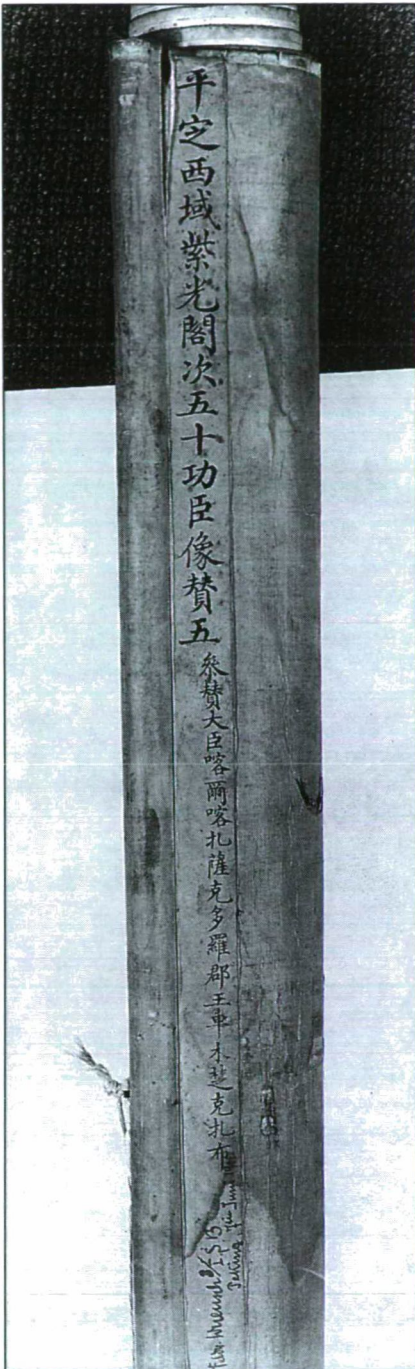 平定西域紫光閣次五十功臣像贊五
叅贊大臣喀爾喀扎薩克多羅郡王車木楚克扎布